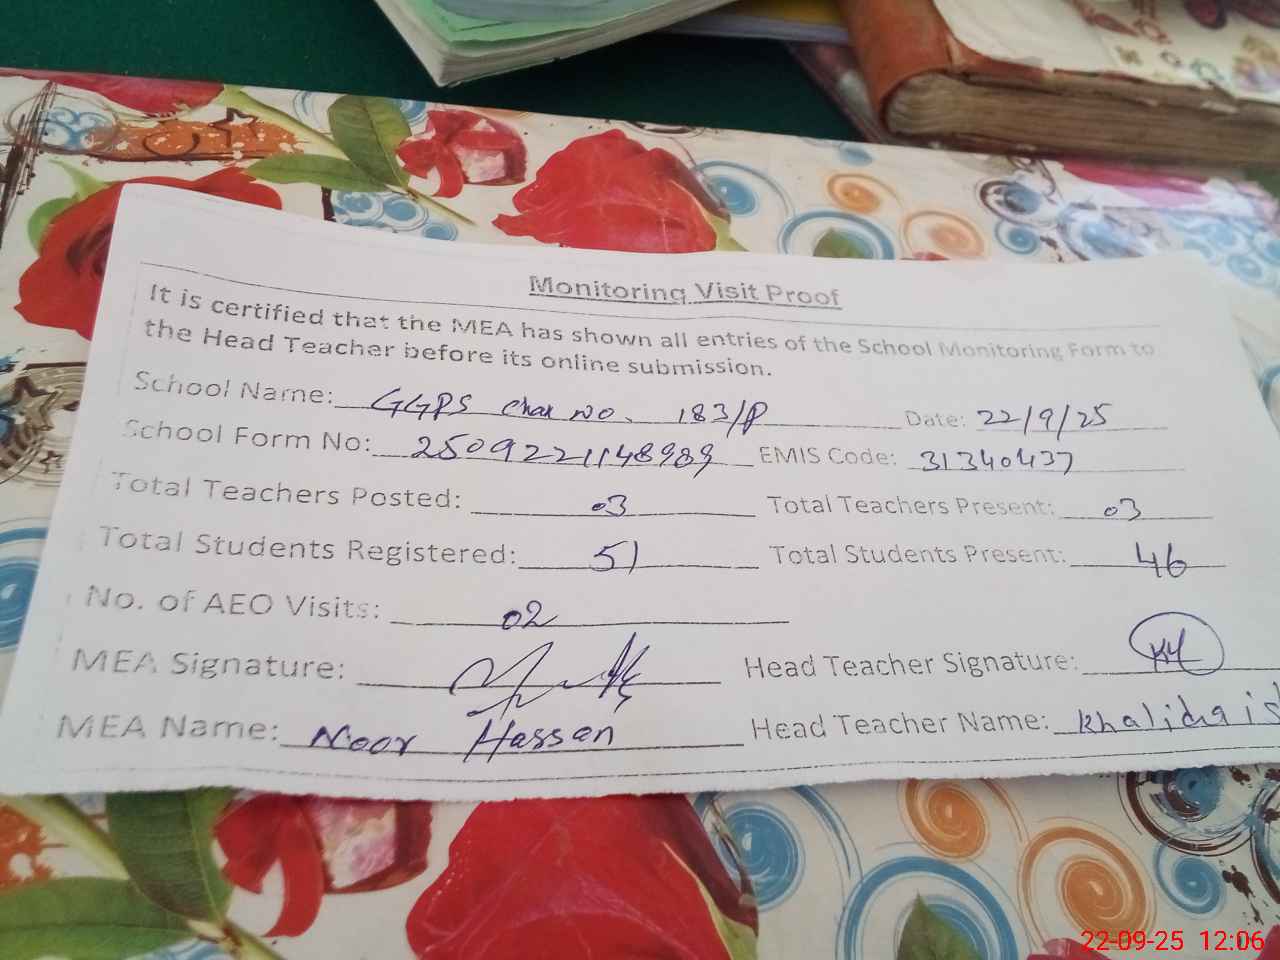 Monitoring Visit Proof
It is certified that the MEA has shown all entries of the School Monitoring Form to
the Head Teacher before its online submission.
School Name: GGPS Chak No. 183/P Date: 22/9/25
School Form No: 2509221148989 EMIS Code: 31340437
Total Teachers Posted: 03 Total Teachers Present: 03
Total Students Registered: 51 Total Students Present: 46
No. of AEO Visits: 02
MEA Signature: Head Teacher Signature:
MEA Name: Noor Hassan Head Teacher Name: Khalida
22-09-25 12:06